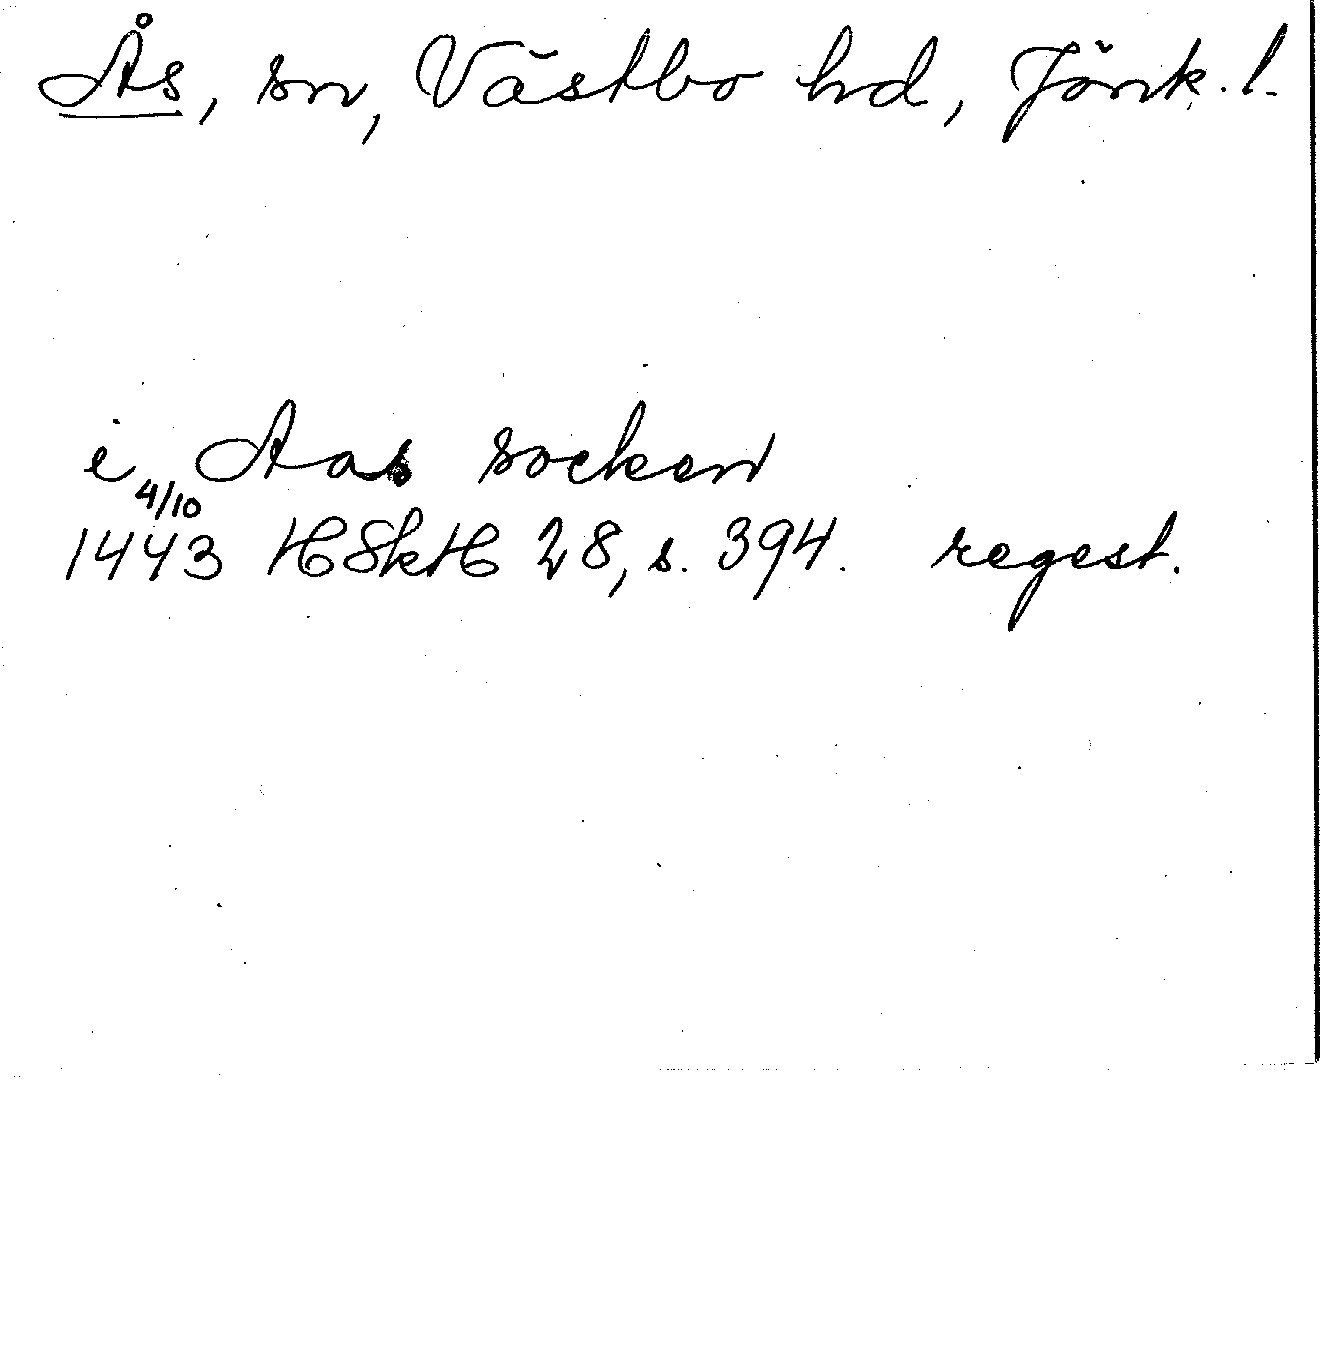 Ås, sn, Västbo hd, Jönk. l.
i Aas socken
4/10
1443 HSkH 28, s. 394. regest.